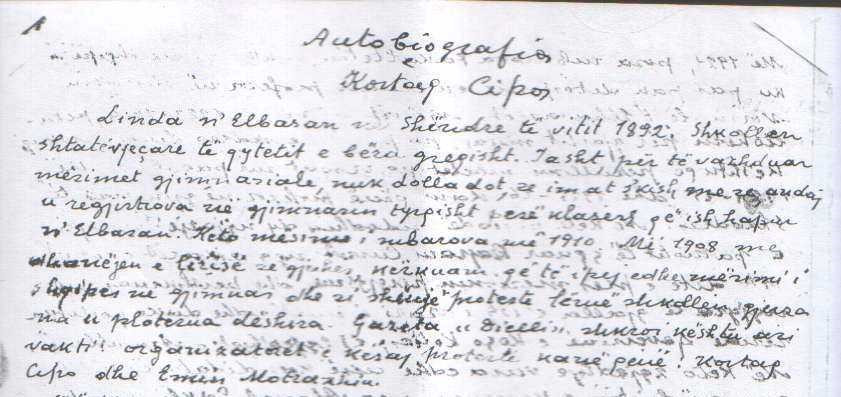 Autobiografia
Kostaq Cipo
Linda n' Elbasan n' Shëndre të vitit 1892. Shkollën
shtatëvjeçare të qytetit e bëra greqisht. Jasht për të vazhduar
mësimet gjimnasiale, nuk dolla dot, se im at s'kish me se andaj
u regjistrova në gjimnasin tyrqisht pesë klasësh që ish hapur
n' Elbasan. Këto mësime i mbarova më 1910. Më 1908 me
dhanëjen e lirisë së gjuhës kërkuam që të ipej edhe mësimi i
shqipes në gjimnas dhe si shenjë proteste lëmë shkollën gjersa
na u plotësua dëshira. Gazeta "Dielli" shkroi kështu asi
vakti: organizatorët e kësaj proteste kanë qenë: Kostaq
Cipo dhe Emin